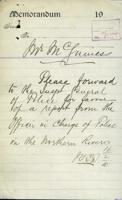 Memorandum 19
Mr McGuiness
Please forward
to the Inspr General
of Police for favor
of a report from the
Officer in Charge of Police
on the Northern Rivers